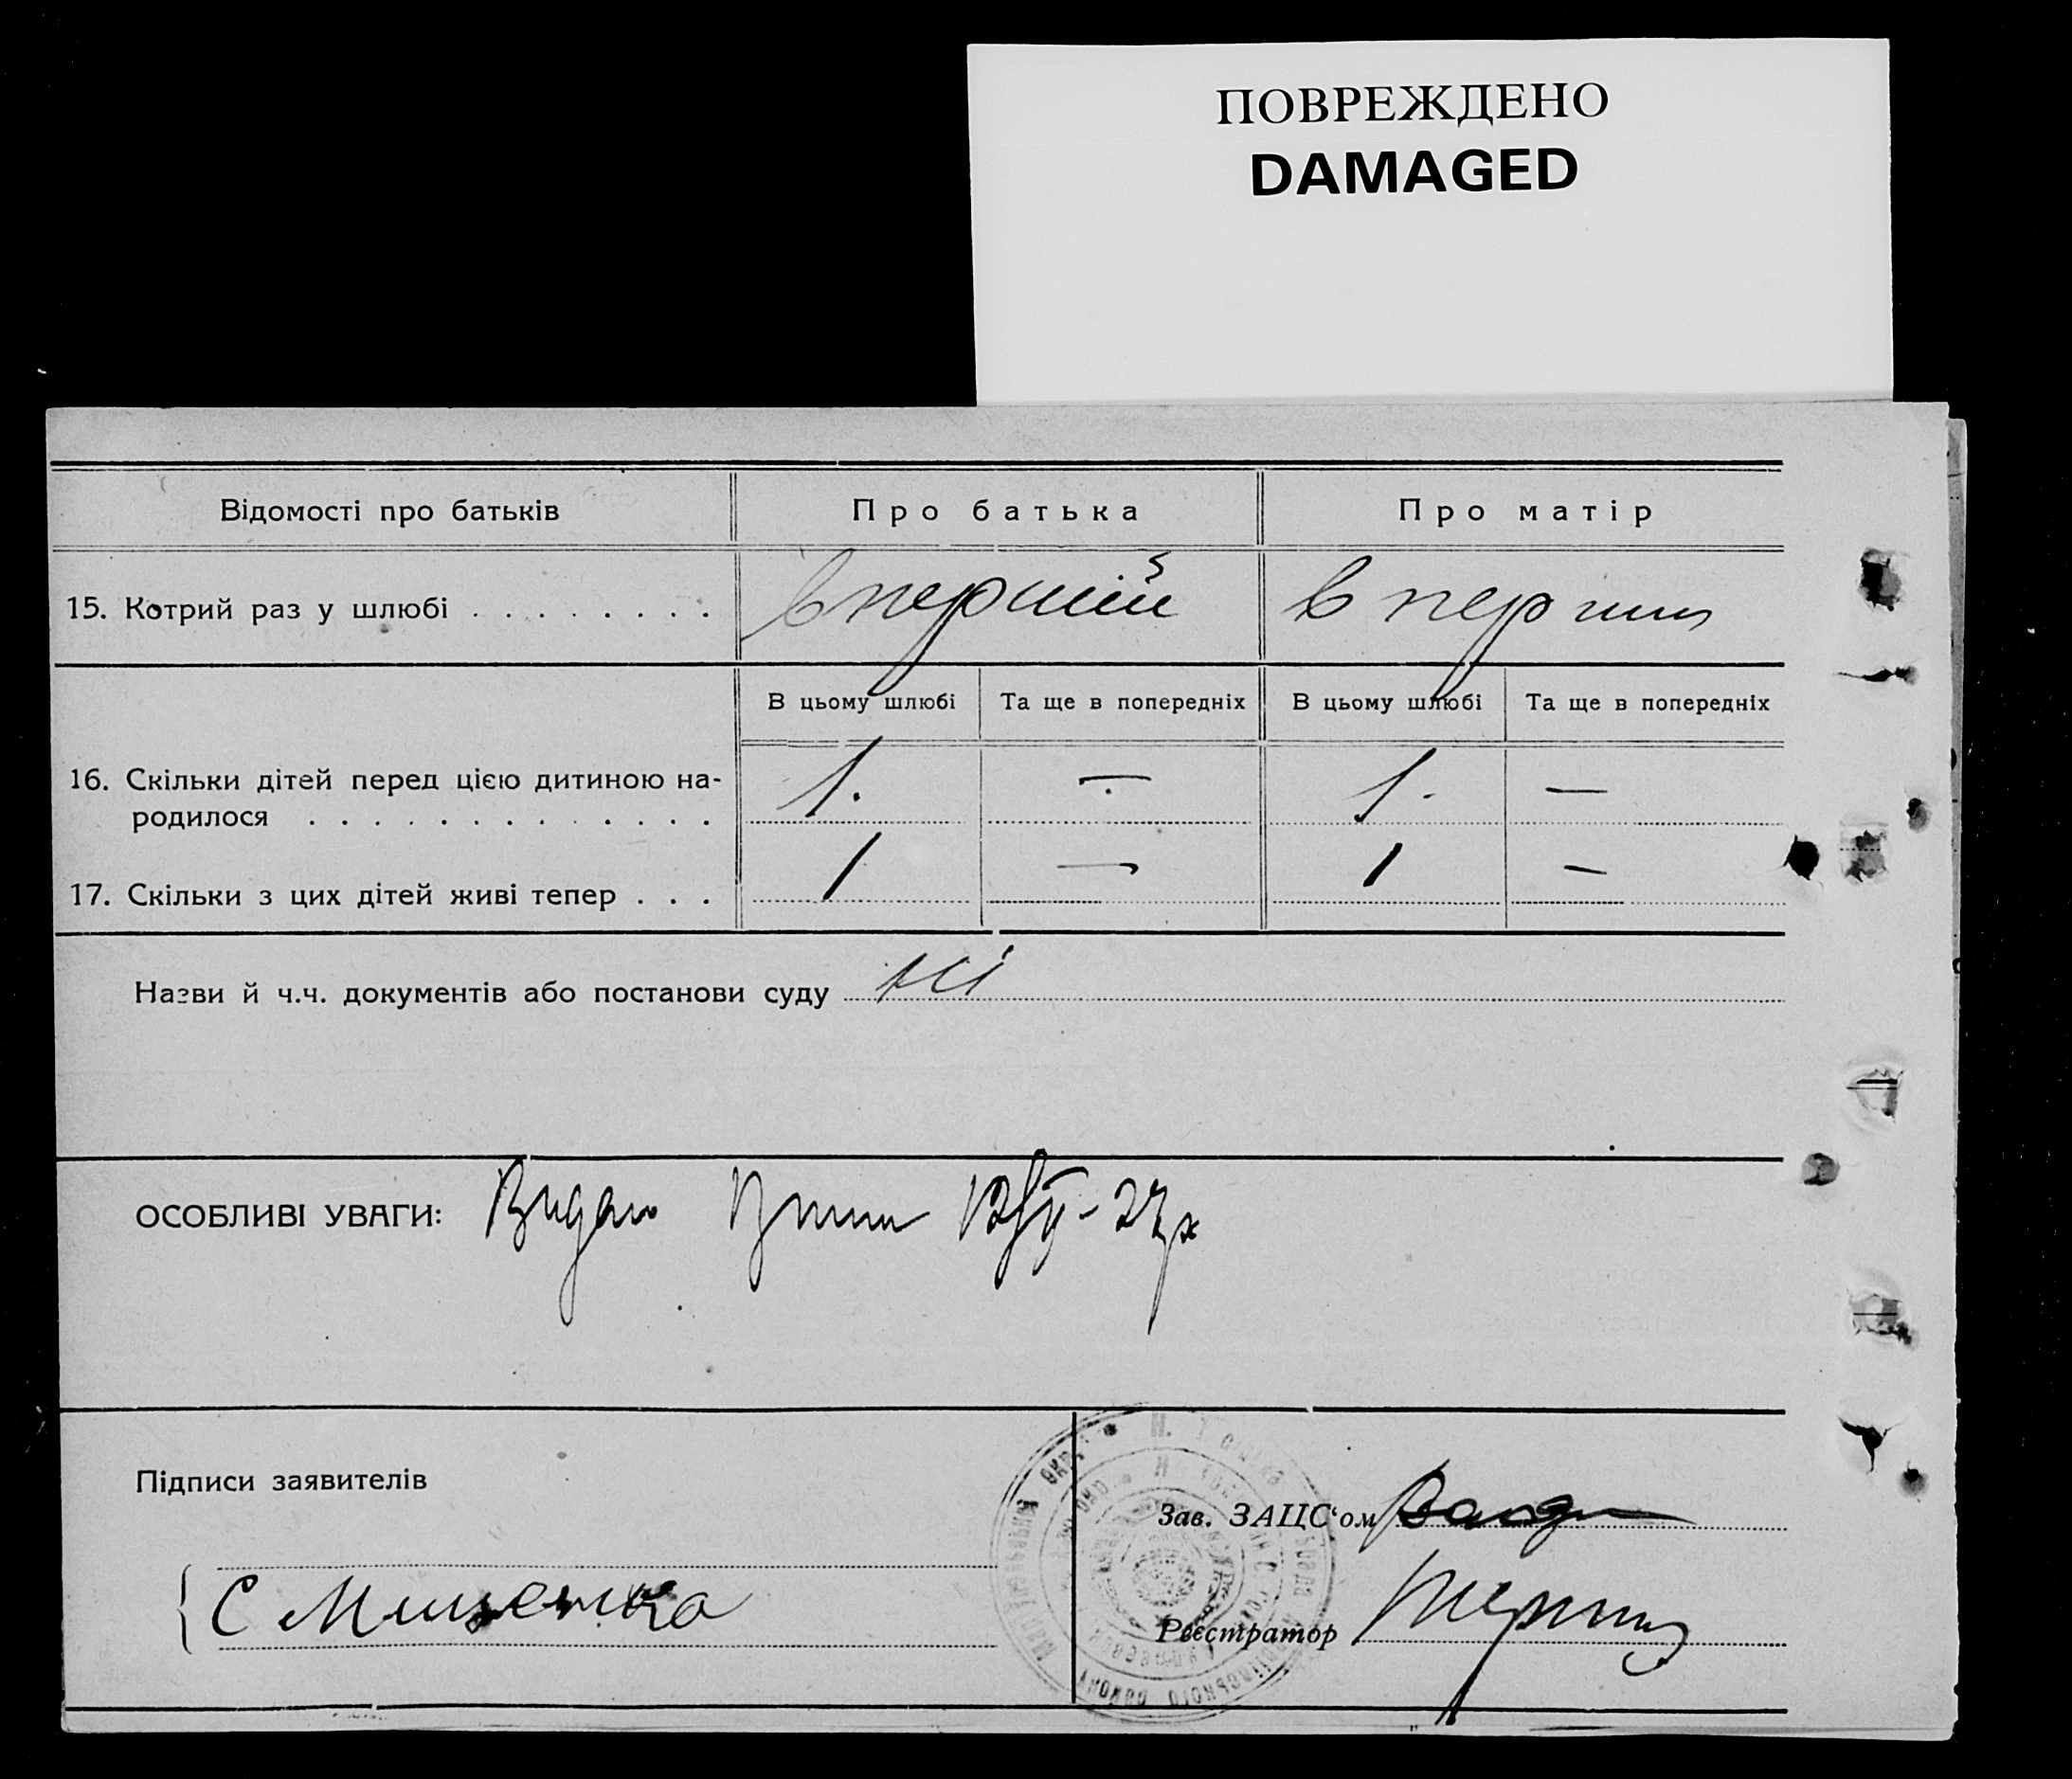 ПОВРЕЖДЕНО
DAMAGED
Відомості про батьків
Про батька
Про матір
15. Котрий раз у шлюбі . . . . . . . .
в перший
в перший
В цьому шлюбі
Та ще в попередніх
В цьому шлюбі
Та ще в попередніх
16. Скільки дітей перед цією дитиною на-
родилося . . . . . . . . . . . . .
1.
—
1.
—
17. Скільки з цих дітей живі тепер . . .
1
—
1
—
Назви й ч.ч. документів або постанови суду
ні
ОСОБЛИВІ УВАГИ:
Підписи заявителів
Зав. ЗАЦС'ом
С Мищенко
Реєстратор